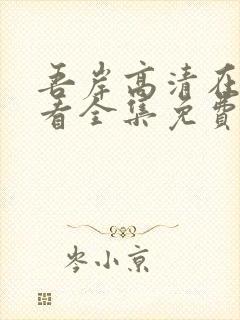 吾岸高清在
看全集免費
岑小京